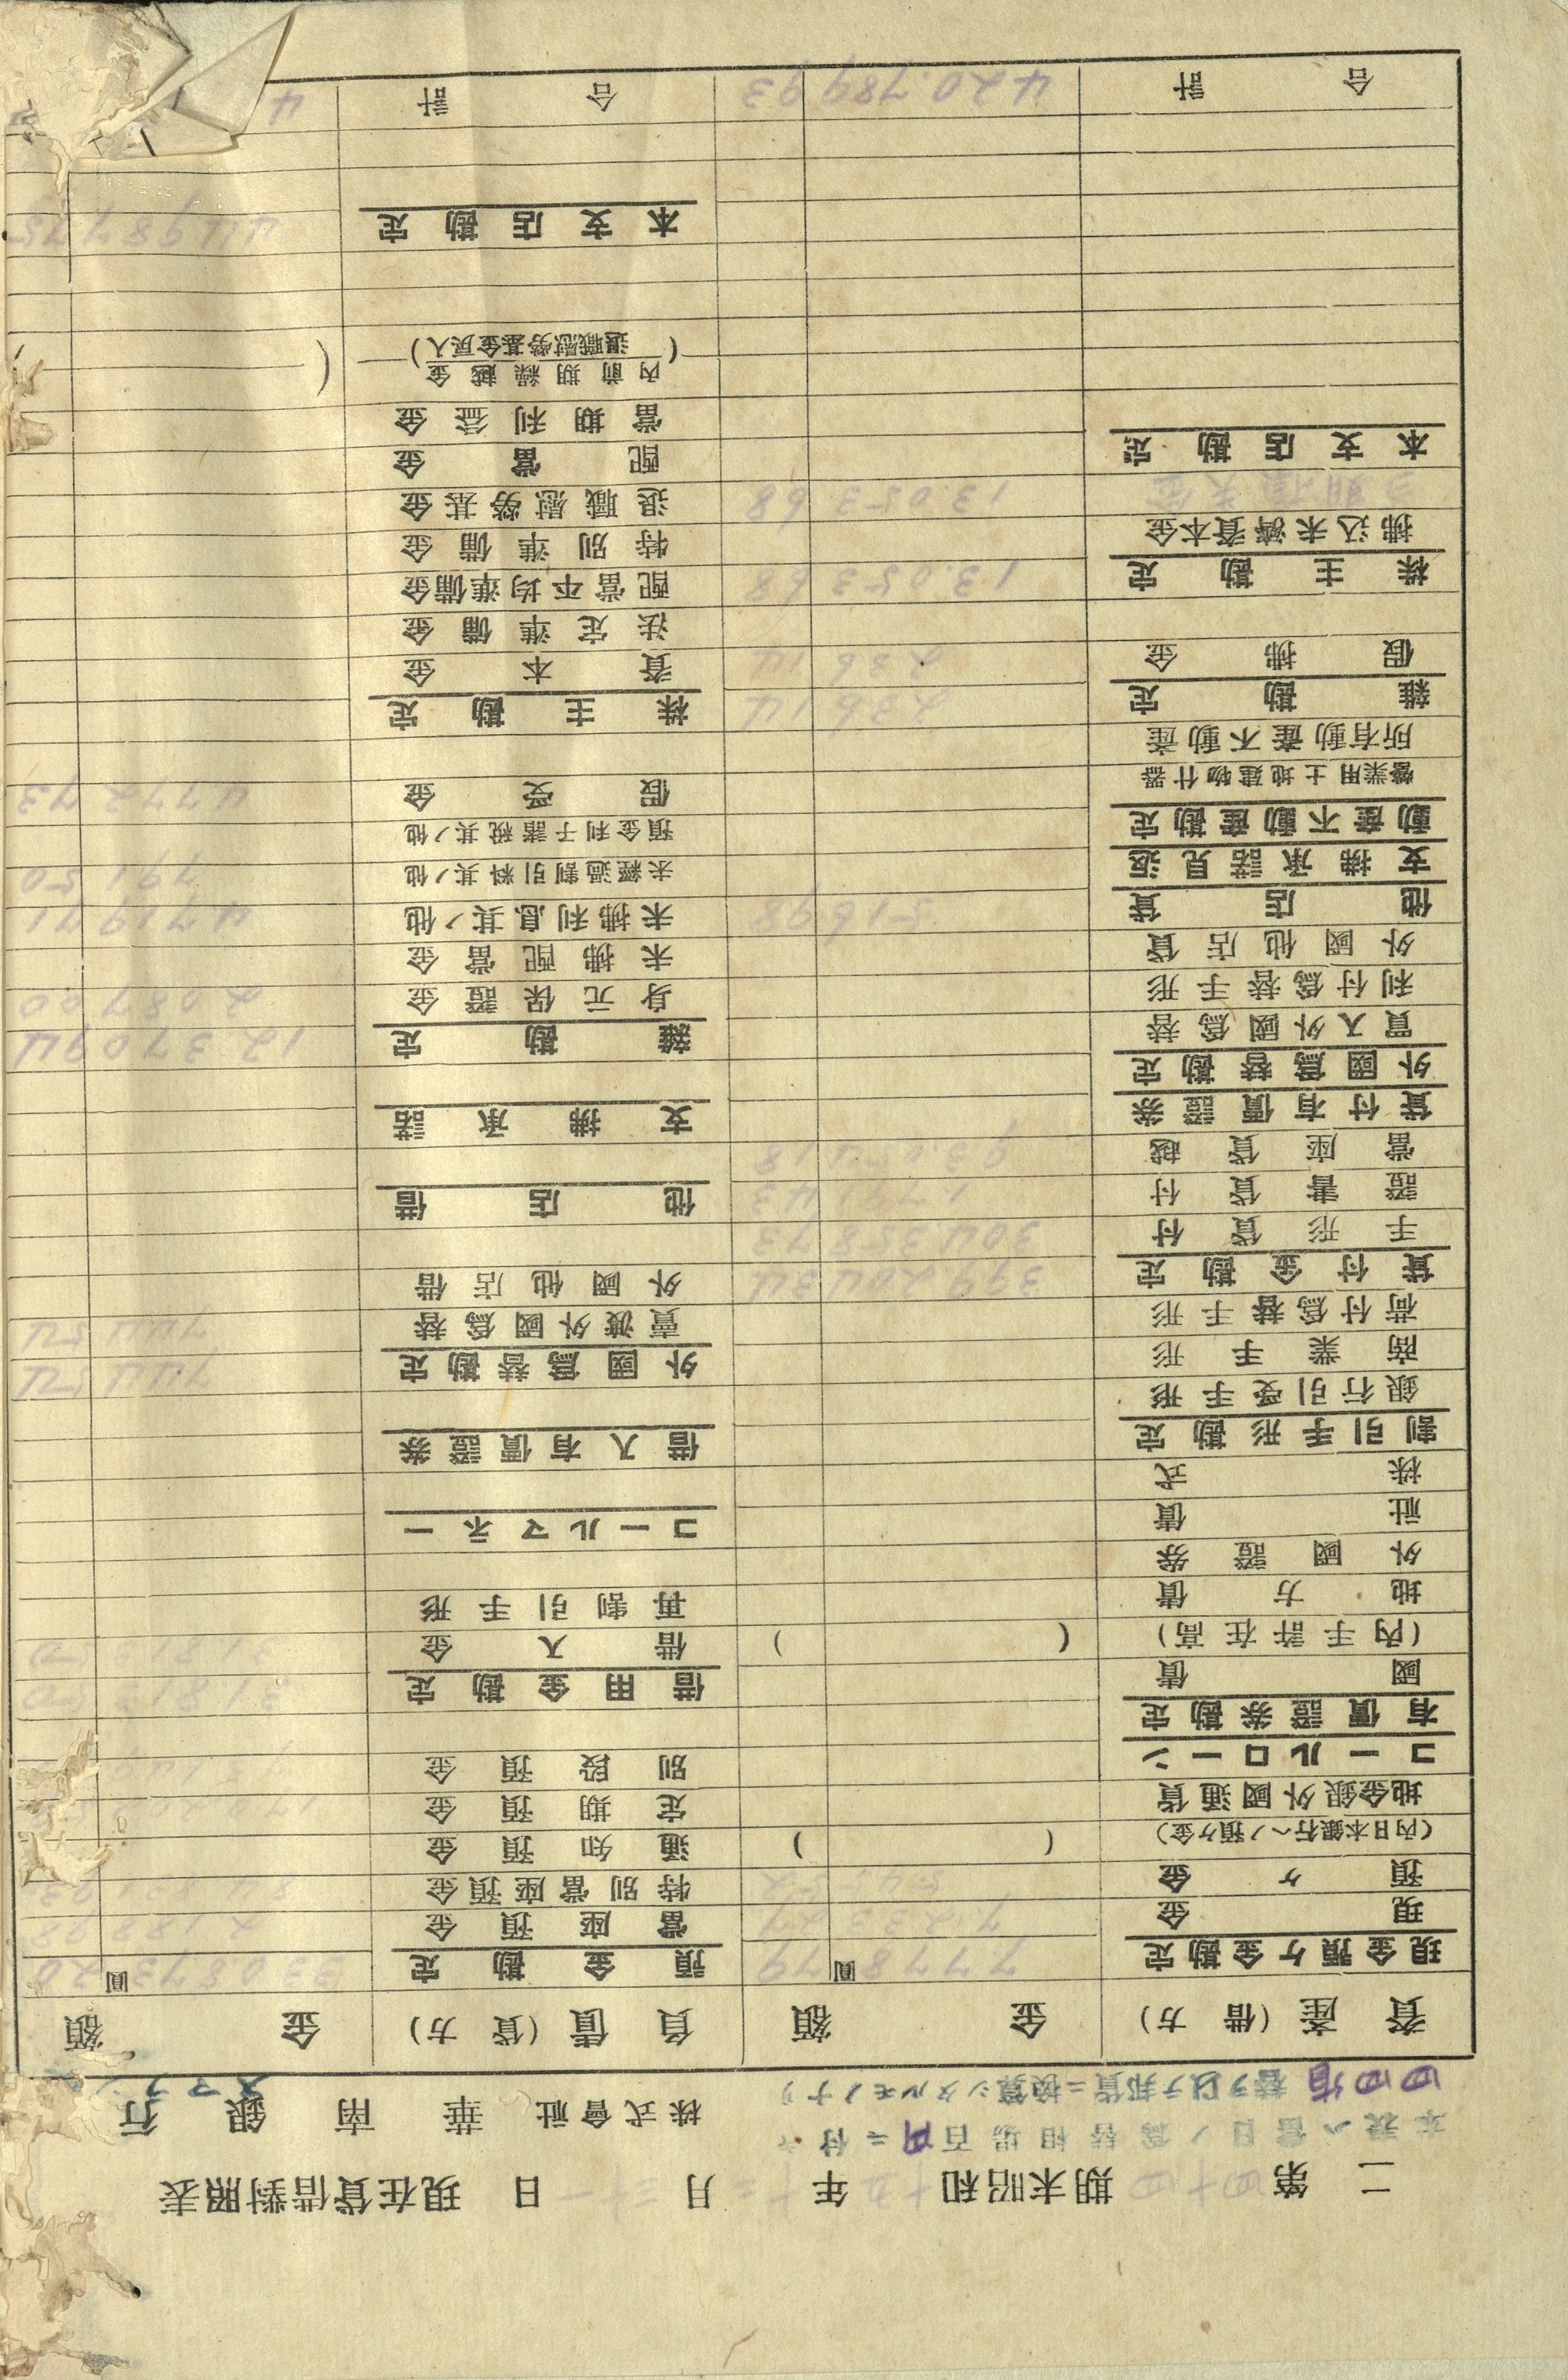 二 第四十四期末昭和十五年十二月三十一日 現在貸借對照表
本表ハ當日ノ為替相場百円ニ付
四四盾 替ヲ以テ邦貨ニ換算シタルモノナリ
株式會社 華南銀行 スマラン
資産(借方) 金額 負債(貸方) 金額
現金預ケ金勘定 7.778 79 圓
現金 7.233 27
預ケ金 545 52
(内日本銀行へノ預ケ金) ( )
地金銀外國通貨
コールローン
有價證券勘定
國債
(内手許在高) ( )
地方債
外國證券
社債
株式
割引手形勘定
銀行引受手形
商業手形
荷付為替手形
貸付金勘定 399.204 34
手形貸付 304.358 73
證書貸付 1.791 43
當座貸越 93.054 18
貸付有價證券
外國為替勘定
買入外國為替
利付為替手形
外國他店貸
他店貸 516 98
支拂承諾見返
動產不動產勘定
營業用土地建物什器
所有動產不動產
雜勘定 236 14
假拂金 236 14
株主勘定 13.053 68
拂込未濟資本金
當期損失金 13.053 68
本支店勘定
合計 420.789 93
預金勘定 圓
當座預金 2.188 08
特別當座預金
通知預金
定期預金
別段預金
借用金勘定 31.813
借入金 31.813
再割引手形
コールマネー
借入有價證券
外國為替勘定 744 54
賣渡外國為替 744 54
外國他店借
他店借
支拂承諾
雜勘定 12.370 94
身元保證金 2.087 00
未拂配當金
未拂利息其ノ他 4.719 71
未經過割引料其ノ他 791 50
預金利子諸稅其ノ他
假受金 4.772 73
株主勘定
資本金
法定準備金
配當平均準備金
特別準備金
退職慰勞基金
配當金
當期利益金
内前期繰越金
(退職慰勞基金戻入) (
本支店勘定 44.987 75
合計 4